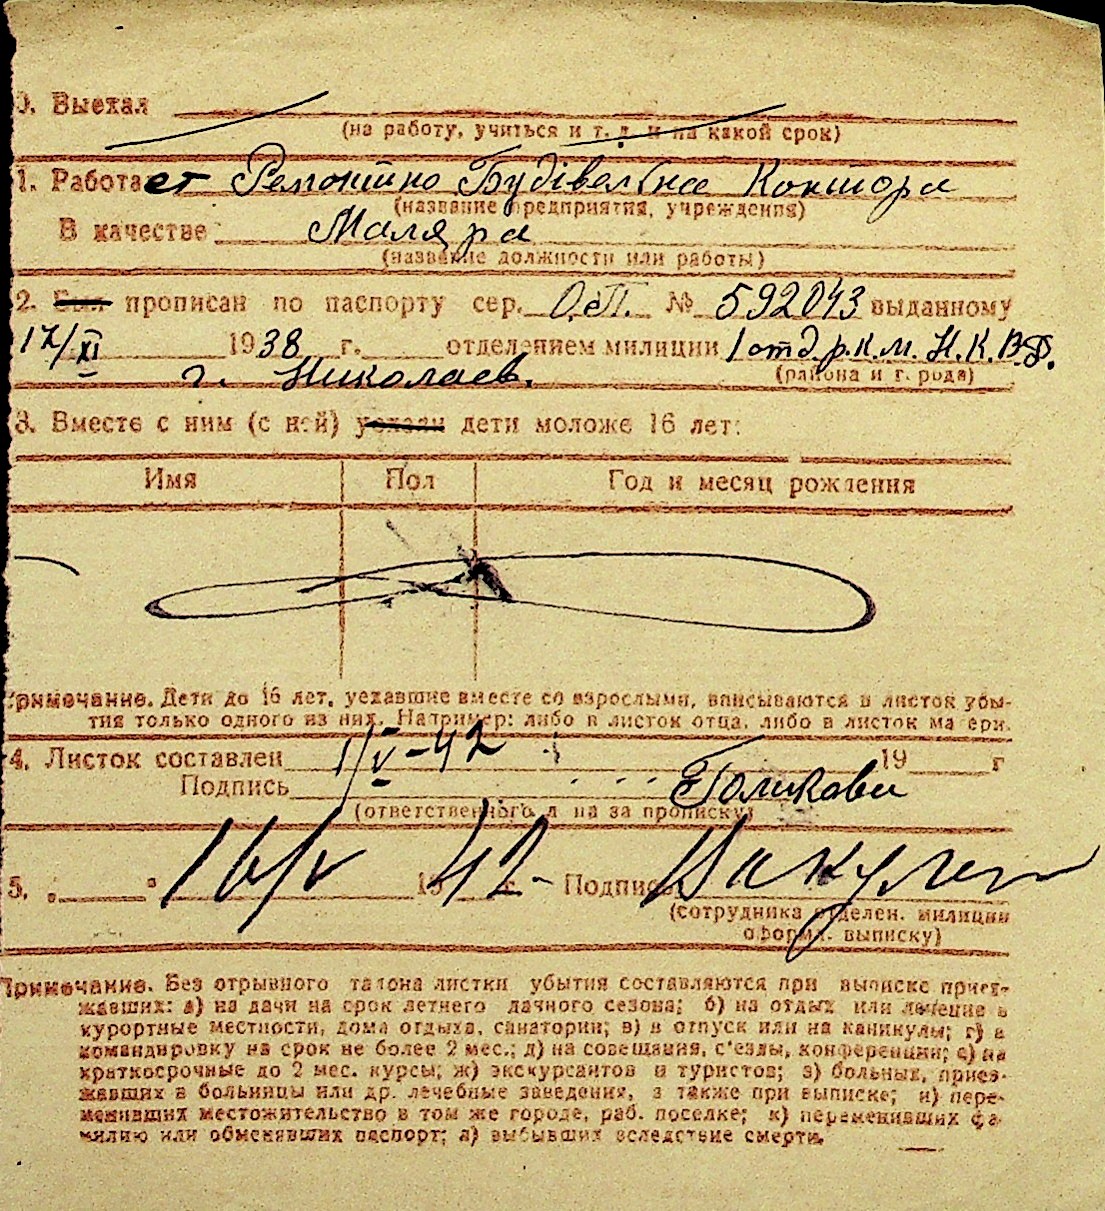 0. Выехал
(на работу, учиться и т. д. и на какой срок)
1. Работает Ремонтно Будівельна Контора
(название предприятия, учреждения)
В качестве Маляра
(название должности или работы)
2. Был прописан по паспорту сер. № 592043 выданному
17/XI 1938 г. отделением милиции 1 отд. р.к.м. Н.К.В.Д.
г. Николаев. (района и города)
3. Вместе с ним (с ней) уехали дети моложе 16 лет:
Имя Пол Год и месяц рождения
Примечание. Дети до 16 лет, уехавшие вместе со взрослыми, вписываются в листок убы-
тия только одного из них. Например: либо в листок отца, либо в листок матери.
4. Листок составлен 1/V-42 19 г
Подпись
(ответственного лица за прописку)
5. „ " 16/V 1942 г. Подпись
(сотрудника отделен. милиции
оформ. выписку)
Примечание. Без отрывного талона листки убытия составляются при выписке приез-
жавших: а) на дачи на срок летнего дачного сезона; б) на отдых или лечение в
курортные местности, дома отдыха, санатории; в) в отпуск или на каникулы; г) в
командировку на срок не более 2 мес.; д) на совещания, с'езды, конференции; е) на
краткосрочные до 2 мес. курсы; ж) экскурсантов и туристов; з) больных, приез-
жавших в больницы или др. лечебные заведения, а также при выписке; и) пере-
менивших местожительство в том же городе, раб. поселке; к) переменивших фа-
милию или обменявших паспорт; л) выбывших вследствие смерти.